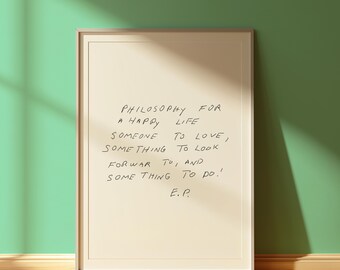 PHILOSOPHY FOR
A HAPPY LIFE
SOMEONE TO LOVE,
SOMETHING TO LOOK
FORWAR TO, AND
SOMETHING TO DO!
E.P.